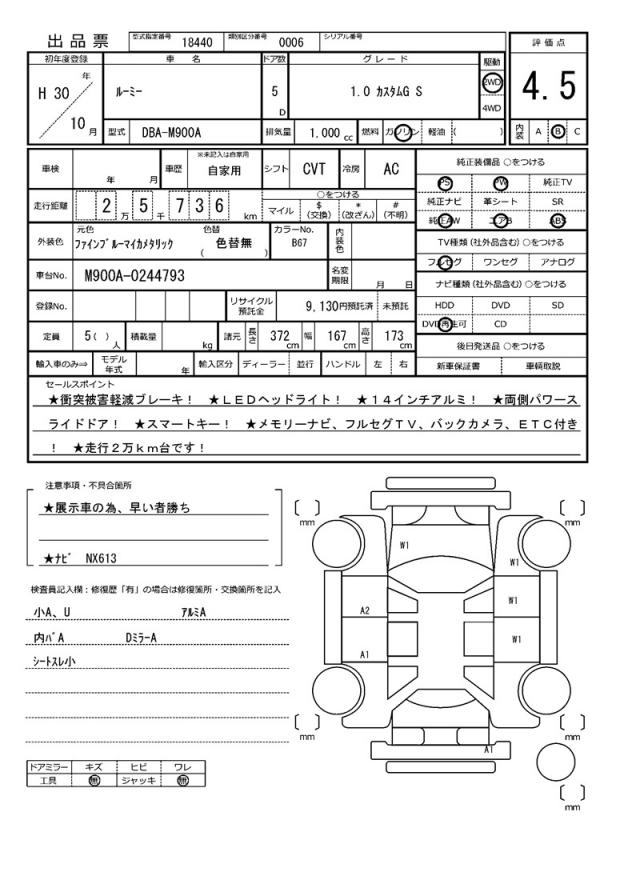 出 品 票 型式指定番号 18440 類別区分番号 0006 シリアル番号
初年度登録 車 名 ドア数 グレード 駆動 評 価 点
H 30 年 ルーミー 5 D 1.0 カスタムG S 2WD 4WD 4.5
10 月 型式 DBA-M900A 排気量 1,000 cc 燃料 ガソリン 軽油 ( ) 内装 A B C
車検 年 月 車歴 ※未記入は自家用 自家用 シフト CVT 冷房 AC 純正装備品 ○をつける
PS PW 純正TV
走行距離 2 万 5 千 7 3 6 km ○をつける 純正ナビ 革シート SR
マイル $ (交換) * (改ざん) # (不明) 純正AW エアB ABS
外装色 元色 ファインブルーマイカメタリック 色替 色替無 ( ) カラーNo. B67 内装色 TV種類 (社外品含む) ○をつける
フルセグ ワンセグ アナログ
車台No. M900A-0244793 名変期限 月 日 ナビ種類 (社外品含む) ○をつける
登録No. リサイクル預託金 9,130円預託済 未預託 HDD DVD SD
DVD再生可 CD
定員 5( ) 人 積載量 kg 諸元 長さ 372 cm 幅 167 cm 高さ 173 cm 後日発送品 ○をつける
輸入車のみ⇒ モデル年式 年 輸入区分 ディーラー 並行 ハンドル 左 右 新車保証書 車輌取説
セールスポイント
★衝突被害軽減ブレーキ！ ★ＬＥＤヘッドライト！ ★１４インチアルミ！ ★両側パワース
ライドドア！ ★スマートキー！ ★メモリーナビ、フルセグＴＶ、バックカメラ、ＥＴＣ付き
！ ★走行２万ｋｍ台です！
注意事項・不具合箇所
★展示車の為、早い者勝ち
★ナビ NX613
検査員記入欄：修復歴「有」の場合は修復箇所・交換箇所を記入
小A、U アルミA
内バA DミラーA
シートスレ小
ドアミラー キズ ヒビ ワレ
工具 無 ジャッキ 無
mm mm
W1 W1
A2 W1
A1 W1
mm mm
A1
mm